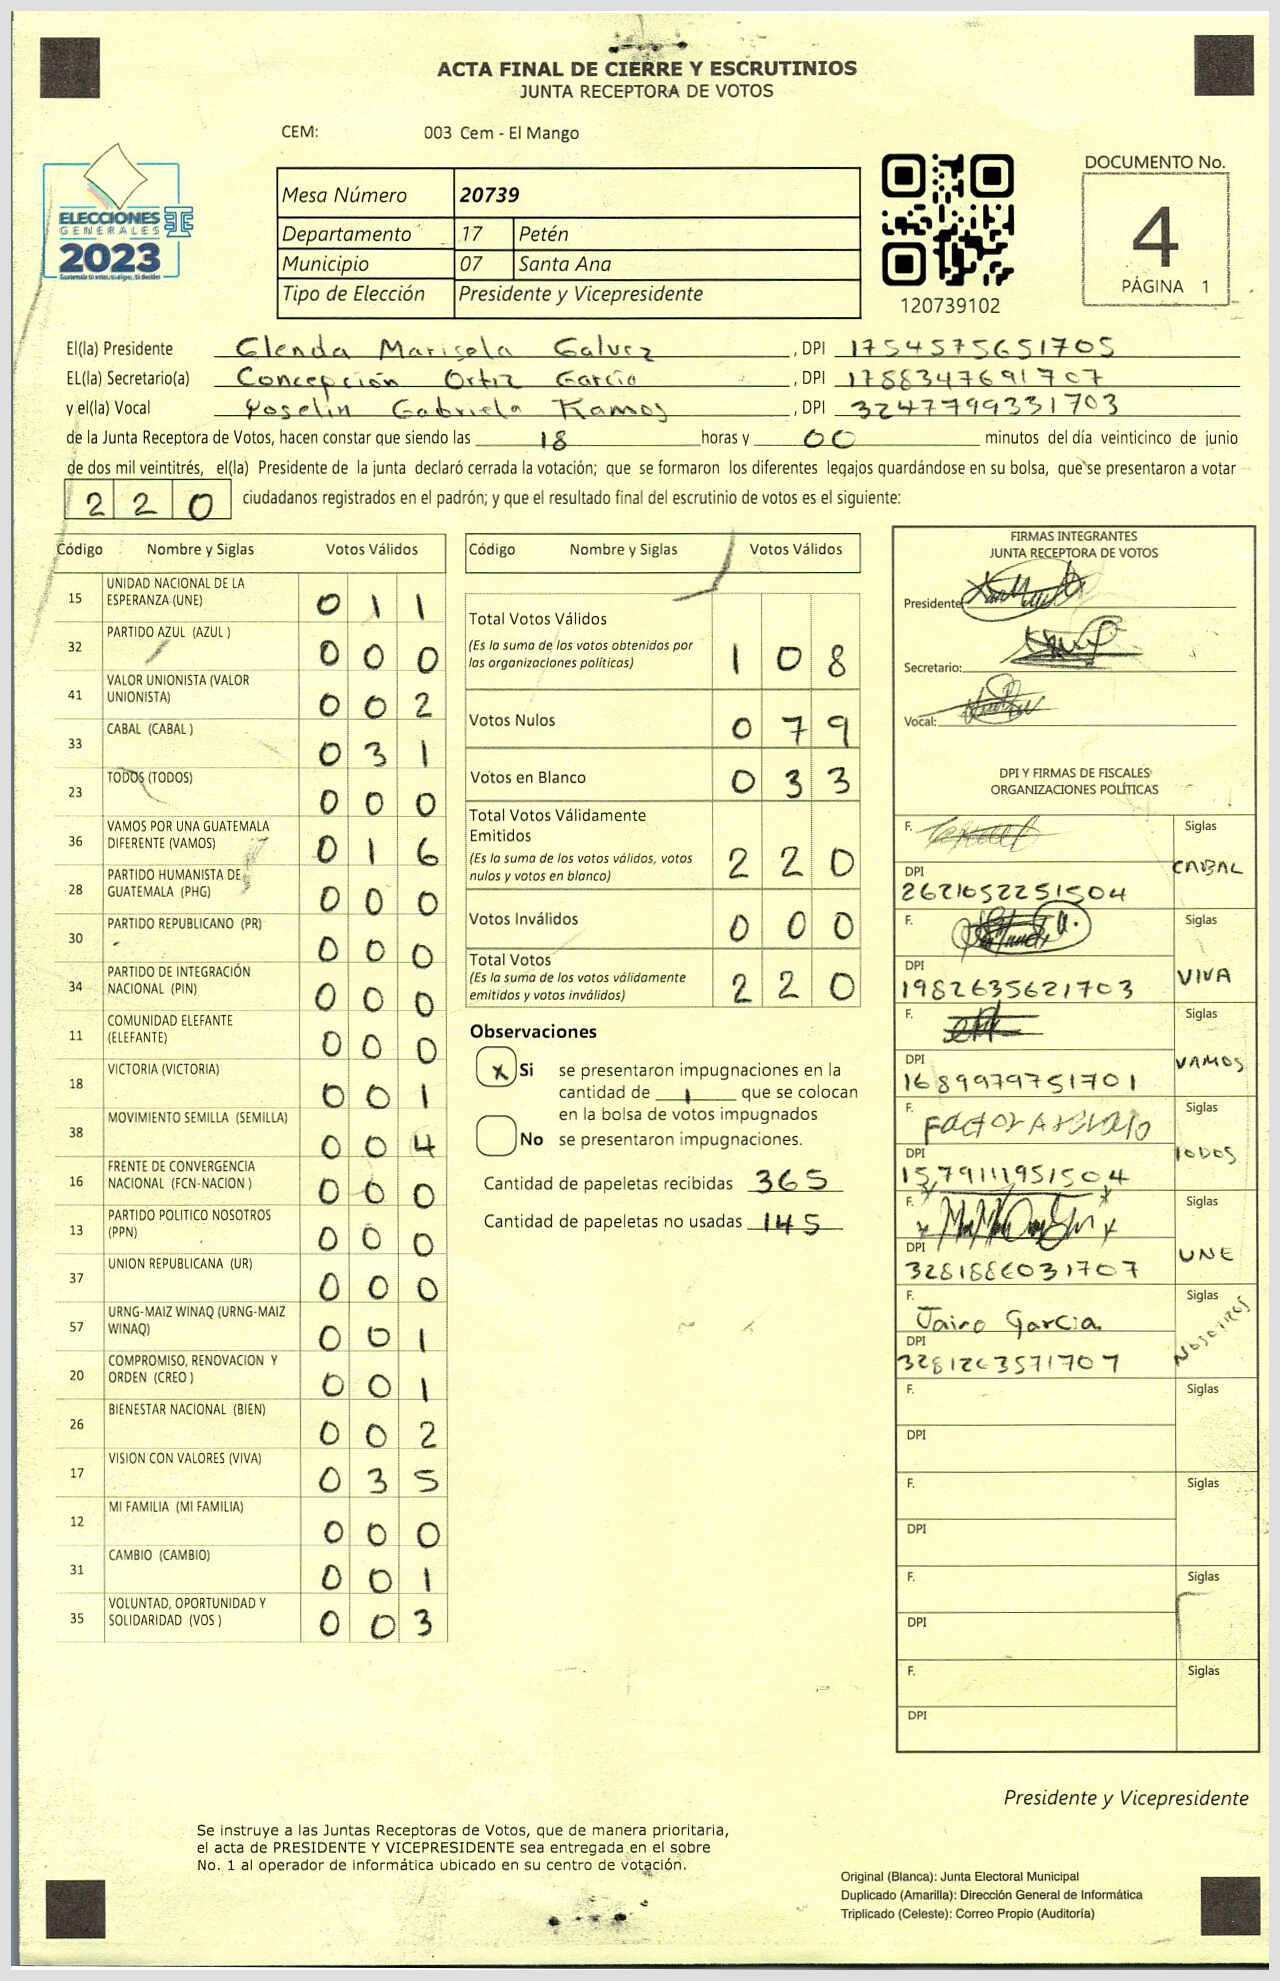 ACTA FINAL DE CIERRE Y ESCRUTINIOS
JUNTA RECEPTORA DE VOTOS
CEM: 003 Cem - El Mango
ELECCIONES
GENERALES
2023
Mesa Número 20739
Departamento 17 Petén
Municipio 07 Santa Ana
Tipo de Elección Presidente y Vicepresidente
120739102
DOCUMENTO No.
4
PÁGINA 1
El(la) Presidente Glenda Marisela Galvez, DPI 1754575651705
EL(la) Secretario(a) Concepción Ortiz García, DPI 1788347691707
y el(la) Vocal Yoselin Gabriela Ramos, DPI 3247799331703
de la Junta Receptora de Votos, hacen constar que siendo las 18 horas y 00 minutos del día veinticinco de junio
de dos mil veintitrés, el(la) Presidente de la junta declaró cerrada la votación; que se formaron los diferentes legajos guardándose en su bolsa, que se presentaron a votar
220 ciudadanos registrados en el padrón; y que el resultado final del escrutinio de votos es el siguiente:
Código Nombre y Siglas Votos Válidos
15 UNIDAD NACIONAL DE LA ESPERANZA (UNE) 011
32 PARTIDO AZUL (AZUL ) 000
41 VALOR UNIONISTA (VALOR UNIONISTA) 002
33 CABAL (CABAL ) 031
23 TODOS (TODOS) 000
36 VAMOS POR UNA GUATEMALA DIFERENTE (VAMOS) 016
28 PARTIDO HUMANISTA DE GUATEMALA (PHG) 000
30 PARTIDO REPUBLICANO (PR) 000
34 PARTIDO DE INTEGRACIÓN NACIONAL (PIN) 000
11 COMUNIDAD ELEFANTE (ELEFANTE) 000
18 VICTORIA (VICTORIA) 001
38 MOVIMIENTO SEMILLA (SEMILLA) 004
16 FRENTE DE CONVERGENCIA NACIONAL (FCN-NACION ) 000
13 PARTIDO POLITICO NOSOTROS (PPN) 000
37 UNION REPUBLICANA (UR) 000
57 URNG-MAIZ WINAQ (URNG-MAIZ WINAQ) 001
20 COMPROMISO, RENOVACION Y ORDEN (CREO ) 001
26 BIENESTAR NACIONAL (BIEN) 002
17 VISION CON VALORES (VIVA) 035
12 MI FAMILIA (MI FAMILIA) 000
31 CAMBIO (CAMBIO) 001
35 VOLUNTAD, OPORTUNIDAD Y SOLIDARIDAD (VOS ) 003
Código Nombre y Siglas Votos Válidos
Total Votos Válidos
(Es la suma de los votos obtenidos por
las organizaciones políticas) 108
Votos Nulos 079
Votos en Blanco 033
Total Votos Válidamente
Emitidos
(Es la suma de los votos válidos, votos
nulos y votos en blanco) 220
Votos Inválidos 000
Total Votos
(Es la suma de los votos válidamente
emitidos y votos inválidos) 220
Observaciones
x Si se presentaron impugnaciones en la
cantidad de 1 que se colocan
en la bolsa de votos impugnados
No se presentaron impugnaciones.
Cantidad de papeletas recibidas 365
Cantidad de papeletas no usadas 145
FIRMAS INTEGRANTES
JUNTA RECEPTORA DE VOTOS
Presidente:
Secretario:
Vocal:
DPI Y FIRMAS DE FISCALES
ORGANIZACIONES POLÍTICAS
F. Siglas
DPI CABAL
2621052251504
F. Siglas
DPI VIVA
1982635621703
F. Siglas
DPI VAMOS
1689979751701
F. Siglas
DPI TODOS
1579111951504
F. Siglas
DPI UNE
3281886031707
F. Jairo García Siglas
DPI NOSOTROS
3281263571707
F. Siglas
DPI
F. Siglas
DPI
F. Siglas
DPI
F. Siglas
DPI
Presidente y Vicepresidente
Se instruye a las Juntas Receptoras de Votos, que de manera prioritaria,
el acta de PRESIDENTE Y VICEPRESIDENTE sea entregada en el sobre
No. 1 al operador de informática ubicado en su centro de votación.
Original (Blanca): Junta Electoral Municipal
Duplicado (Amarilla): Dirección General de Informática
Triplicado (Celeste): Correo Propio (Auditoría)